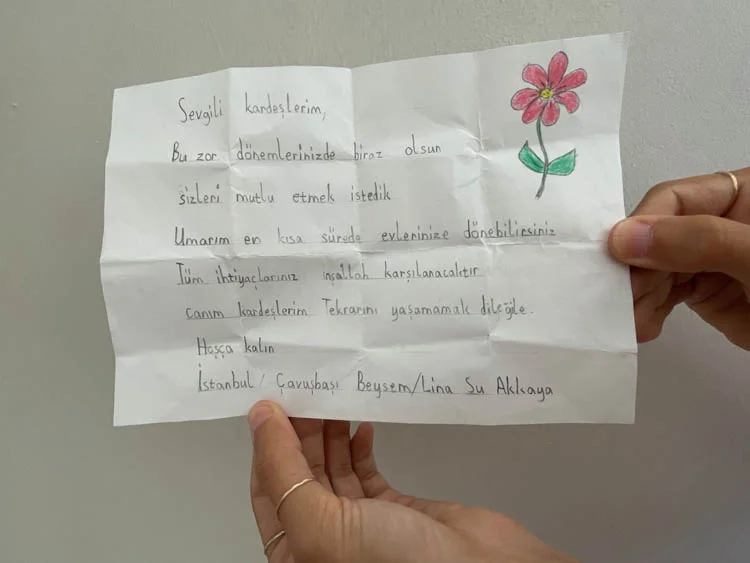 Sevgili kardeşlerim,
Bu zor dönemlerinizde biraz olsun
sizleri mutlu etmek istedik
Umarım en kısa sürede evlerinize dönebilirsiniz
Tüm ihtiyaçlarınız inşallah karşılanacaktır
canım kardeşlerim Tekrarını yaşamamak dileğile.
Hoşça kalın
İstanbul / Çavuşbaşı Beysem/Lina Su Akkaya